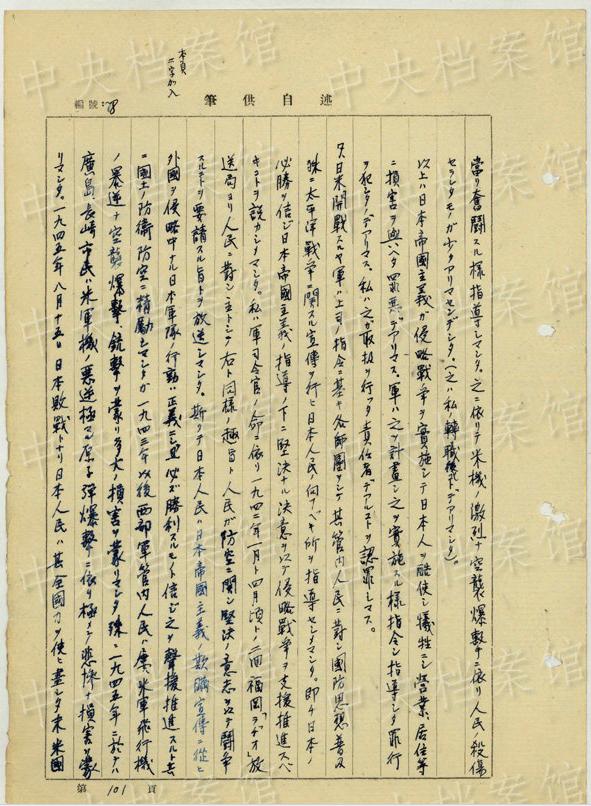 述自供筆
編號：78
本頁
二字加入
當リ奮闘スル様指導シマシタ。之ニ依リテ米機ノ激烈ナ空襲爆撃等ニ依リ人民ノ殺傷
セラレタモノガ少クアリマセンデシタ。(之ハ私ノ轉職後デアリマシタ)。
以上ハ日本帝國主義ガ侵略戰爭ヲ實施シテ日本人ヲ酷使シ犠牲ニシ營業、居住等
ニ損害ヲ與ヘタ罪悪デアリマス。軍ハ之ヲ計畫シ之ヲ實施スル様指令シ指導シタ罪行
ヲ犯シタノデアリマス。私ハ之ガ取扱ヲ行ッタ責任者デアルコトヲ認罪シマス。
7、日米開戰スルヤ軍ハ上司ノ指令ニ基キ各師團ヲシテ其管内人民ニ對シ國防思想普及
殊ニ太平洋戰爭ニ関スル宣傳ヲ行ヒ日本人民ノ向フベキ所ヲ指導セシメマシタ。即チ日本ノ
必勝ヲ信ジ日本帝國主義ノ指導ノ下ニ堅決ナル決意ヲ以テ侵略戰爭ヲ支援推進スベ
キコトヲ説カシメマシタ。私ハ軍司令官ノ命ニ依リ一九四二年一月ト四月頃トノ二回福岡「ラヂオ」放
送局ヨリ人民ニ對シ主トシテ右ト同様ノ趣旨ト人民ガ防空ニ関シ堅決ノ意志ヲ以テ闘爭
スルコトヲ要請スル旨トヲ放送シマシタ。斯クテ日本人民ハ日本帝國主義ノ欺瞞宣傳ニ從ヒ
外國ヲ侵略中ナル日本軍隊ノ行動ハ正義ニシテ必ズ勝利スルモノト信ジ之ヲ聲援推進スルト共
ニ國土ノ防衛防空ニ精勵シマシタガ一九四三年以後西部軍管内人民ハ屡米軍飛行機
ノ暴逆ナ空襲、爆撃、銃撃ヲ蒙リ多大ノ損害ヲ蒙リマシタ殊ニ一九四五年ニ於テハ
廣島長崎市民ハ米軍機ノ悪逆極ル原子弾爆撃ニ依リ極メテ悲惨ナ損害ヲ蒙
リマシタ。一九四五年八月十五日日本敗戰トナリ日本人民ハ其全國力ヲ使ヒ盡シタ末米國
第101頁
中央档案馆